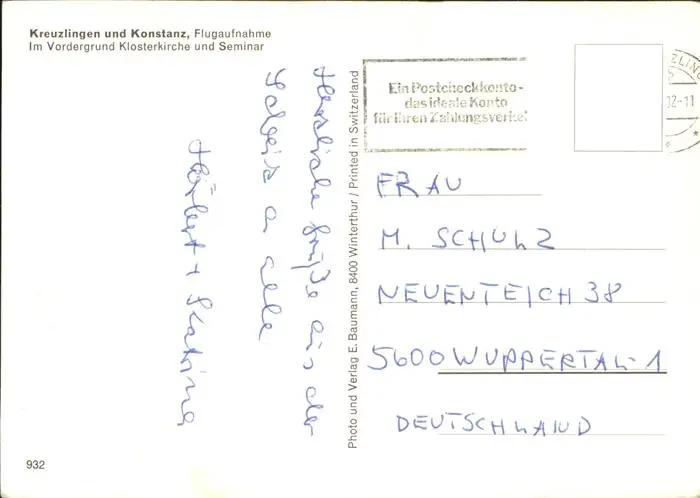 Kreuzlingen und Konstanz, Flugaufnahme
Im Vordergrund Klosterkirche und Seminar
Herzliche Grüße aus der
Schweiz a alle
+ Katrina
Photo und Verlag E. Baumann, 8400 Winterthur / Printed in Switzerland
Ein Postcheckkonto-
das ideale Konto
für Ihren Zahlungsverke
ZLING
02-11
FRAU
M. SCHULZ
NEUENTEICH 38
5600 WUPPERTAL-1
DEUTSCHLAND
932